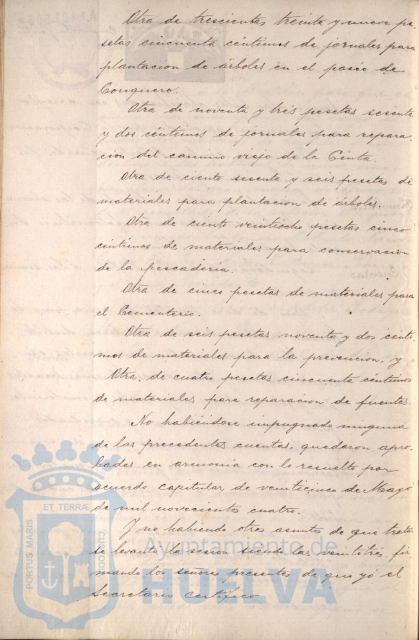 Otra de trescientas treinta y nueve pe-
setas cincuenta céntimos de jornales para
plantacion de árboles en el paseo de
Conquero.
Otra de noventa y tres pesetas sesenta
y dos céntimos de jornales para repara-
cion del camino viejo de la Cinta.
Otra de ciento sesenta y seis pesetas de
materiales para plantacion de árboles.
Otra de ciento veintiocho pesetas cinco
céntimos de materiales para conservacion
de la pescaderia.
Otra de cinco pesetas de materiales para
el Cementerio.
Otra de seis pesetas noventa y dos cénti-
mos de materiales para la prevencion, y
Otra, de cuatro pesetas cincuenta céntimos
de materiales para reparacion de fuentes.
No habiéndose impugnado ninguna
de las precedentes cuentas, quedaron apro-
badas en armonia con lo resuelto por
acuerdo capitular de veinticinco de Mayo
de mil novecientos cuatro.
Y no habiendo otro asunto de que tratar
se levantó la sesion siendo las veintitres, fir-
mando los señores presentes de que yo el
Secretario certifico.
PORTUS MARIS
ET TERRÆ
CUSTODIA
Ayuntamiento de
HUELVA